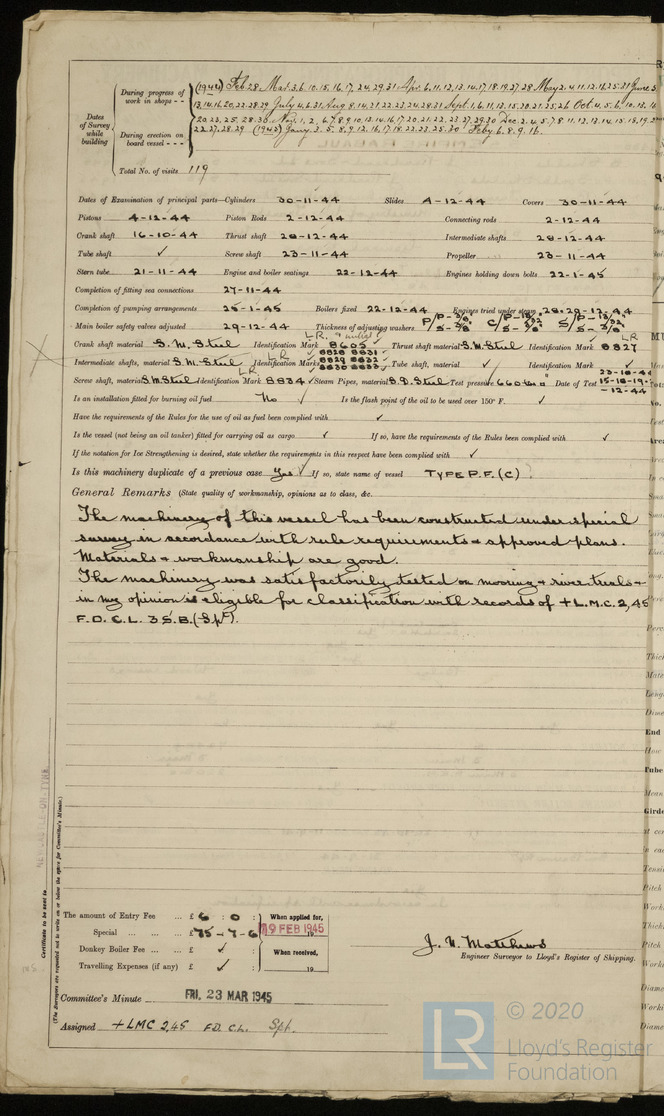 (1944) Feb 28 Mar. 3.6.10.15.16.17.24.29.31 Apr. 6.11.12.13.14.17.18.19.27.28 May 2.4.11.12.16.25.31 June 3
During progress of work in shops - -
13.14.16.20.22.28.29 July 4.6.31 Aug 8.14.21.22.23.24.28.31 Sept. 1.6.11.13.15.20.21.25.26 Oct. 4.5.6.10.13.16
Dates of Survey while building
20.23.25.28.30. Nov. 1.2.6.7.8.9.10.13.14.16.17.20.21.22.23.27.29.30 Dec. 2.4.5.7.8.11.12.13.14.15.18.19
During erection on board vessel - - -
22.27.28.29 (1945) Jany. 3.5.8.9.12.16.17.18.22.23.25.30 Feby 6.8.9.16.
Total No. of visits 119
Dates of Examination of principal parts—Cylinders 30-11-44 Slides 4-12-44 Covers 30-11-44
Pistons 4-12-44 Piston Rods 2-12-44 Connecting rods 2-12-44
Crank shaft 16-10-44 Thrust shaft 28-12-44 Intermediate shafts 28-12-44
Tube shaft ✓ Screw shaft 23-11-44 Propeller 23-11-44
Stern tube 21-11-44 Engine and boiler seatings 22-12-44 Engines holding down bolts 22-1-45
Completion of fitting sea connections 27-11-44
Completion of pumping arrangements 25-1-45 Boilers fixed 22-12-44 Engines tried under steam 28-29-12-44
Main boiler safety valves adjusted 29-12-44 Thickness of adjusting washers
Crank shaft material S.M. Steel Identification Mark LR 8605 Thrust shaft material S.M. Steel Identification Mark LR 8827
Intermediate shafts, material S.M. Steel Identification Marks LR 8828 8831 8829 8832 8830 8833 Tube shaft, material ✓ Identification Mark ✓
Screw shaft, material S.M Steel Identification Mark LR 8834 ✓ Steam Pipes, material S.D. Steel Test pressure 660 Date of Test 23-10-44 15-18-19- -12-44
Is an installation fitted for burning oil fuel No ✓ Is the flash point of the oil to be used over 150° F. ✓
Have the requirements of the Rules for the use of oil as fuel been complied with ✓
Is the vessel (not being an oil tanker) fitted for carrying oil as cargo ✓ If so, have the requirements of the Rules been complied with ✓
If the notation for Ice Strengthening is desired, state whether the requirements in this respect have been complied with ✓
Is this machinery duplicate of a previous case Yes If so, state name of vessel TYPE P.F. (C)
General Remarks (State quality of workmanship, opinions as to class, &c.
The machinery of this vessel has been constructed under special
survey in accordance with rule requirements & approved plans.
Materials & workmanship are good.
The machinery was satisfactorily tested on mooring & river trials &
in my opinion is eligible for classification with records of + L.M.C. 2,45
F.D. C.L. 3 S.B. (Spt).
Certificate to be sent to
NEWCASTLE-ON-TYNE
(The Surveyors are requested not to write on or below the space for Committee's Minute.)
The amount of Entry Fee ... £ 6 : 0 : When applied for,
Special ... ... £ 75-7-6 19 FEB 1945
Donkey Boiler Fee ... ... £ ✓ : When received,
Travelling Expenses (if any) £ ✓ : 19
J. N. Matthews
Engineer Surveyor to Lloyd's Register of Shipping.
Committee's Minute FRI. 23 MAR 1945
Assigned + LMC 2,45 F.D. CL. Spt.
LR
© 2020
Lloyd's Register
Foundation